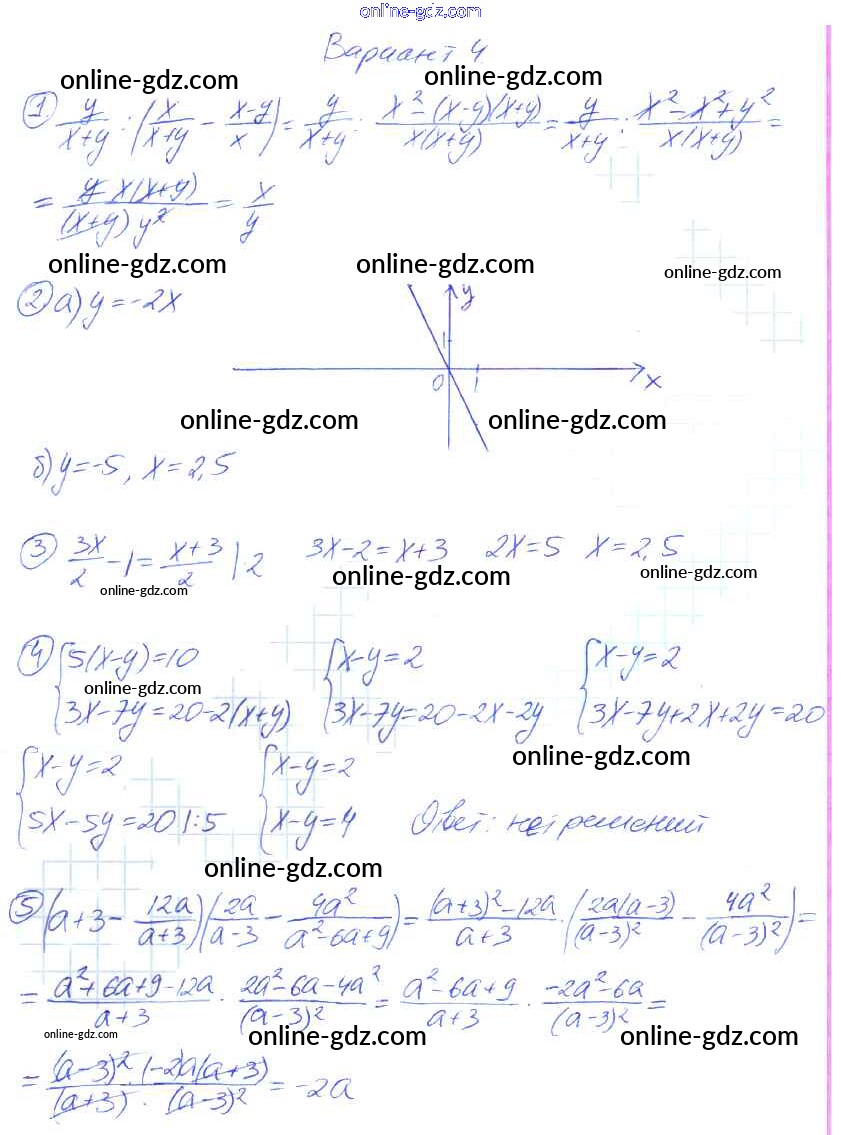 online-gdz.com
Вариант 4
online-gdz.com online-gdz.com
① y/(x+y) : (x/(x+y) - (x-y)/x) = y/(x+y) : (x²-(x-y)(x+y))/(x(x+y)) = y/(x+y) : (x²-x²+y²)/(x(x+y)) =
= (y x(x+y))/((x+y) y²) = x/y
online-gdz.com online-gdz.com online-gdz.com
② а) y=-2x
y
1
0 1 x
online-gdz.com online-gdz.com
б) y=-5, x=2,5
③ 3x/2 - 1 = (x+3)/2 |·2 3x-2=x+3 2x=5 x=2,5
online-gdz.com online-gdz.com online-gdz.com
④ { 5(x-y)=10 { x-y=2 { x-y=2
online-gdz.com
3x-7y=20-2(x+y) 3x-7y=20-2x-2y 3x-7y+2x+2y=20
online-gdz.com
{ x-y=2 { x-y=2
5x-5y=20 |:5 x-y=4 Ответ: нет решений
online-gdz.com
⑤ (a+3 - 12a/(a+3)) (2a/(a-3) - 4a²/(a²-6a+9)) = ((a+3)²-12a)/(a+3) · (2a(a-3)/(a-3)² - 4a²/(a-3)²) =
= (a²+6a+9-12a)/(a+3) · (2a²-6a-4a²)/(a-3)² = (a²-6a+9)/(a+3) · (-2a²-6a)/(a-3)² =
online-gdz.com online-gdz.com online-gdz.com
= ((a-3)² · (-2)a(a+3))/((a+3) · (a-3)²) = -2a
online-gdz.com online-gdz.com